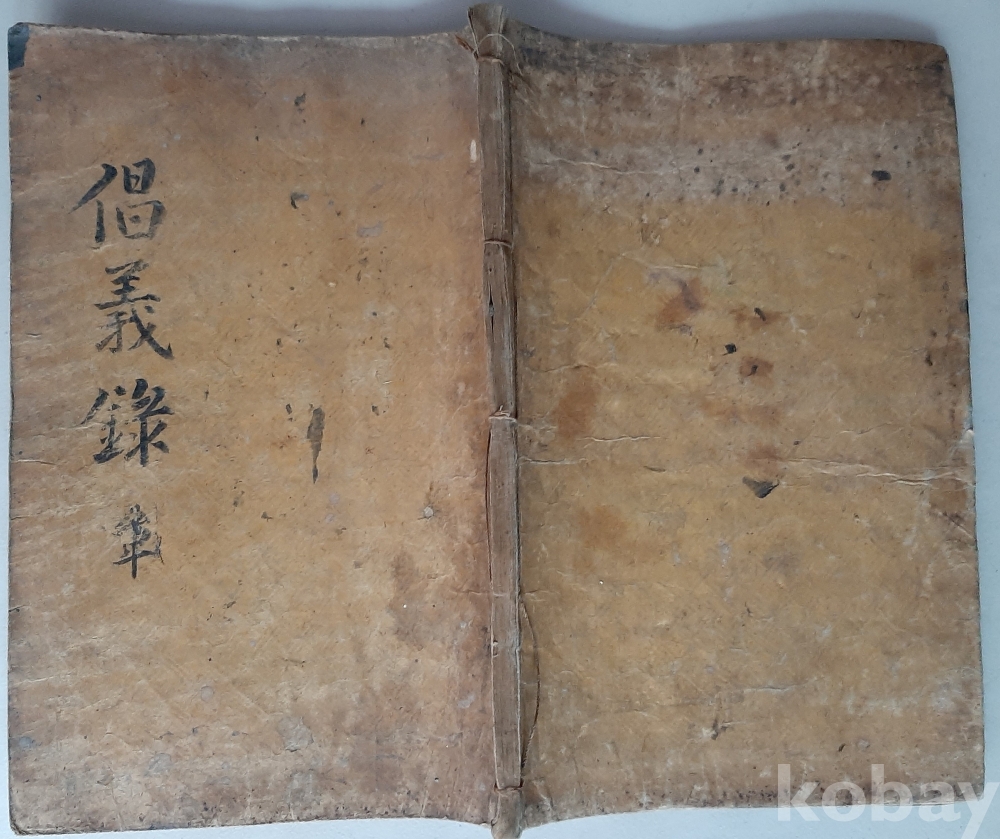 倡義錄
kobay